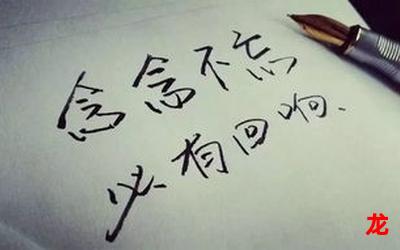 念念不忘
必有回响、
龙